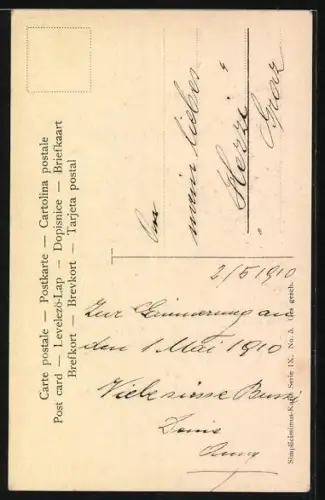 Carte postale — Postkarte — Cartolina postale
Post card — Levelező-Lap — Dopisnice — Briefkaart
Brefkort — Brevkort — Tarjeta postal
An
mein liebes
Herzi
Graz
2/5 1910
Zur Erinnerung an
den 1 Mai 1910
Viele süsse Bussi
Simplicissimus-Karte, Serie IX. No. 5. Ges. gesch.